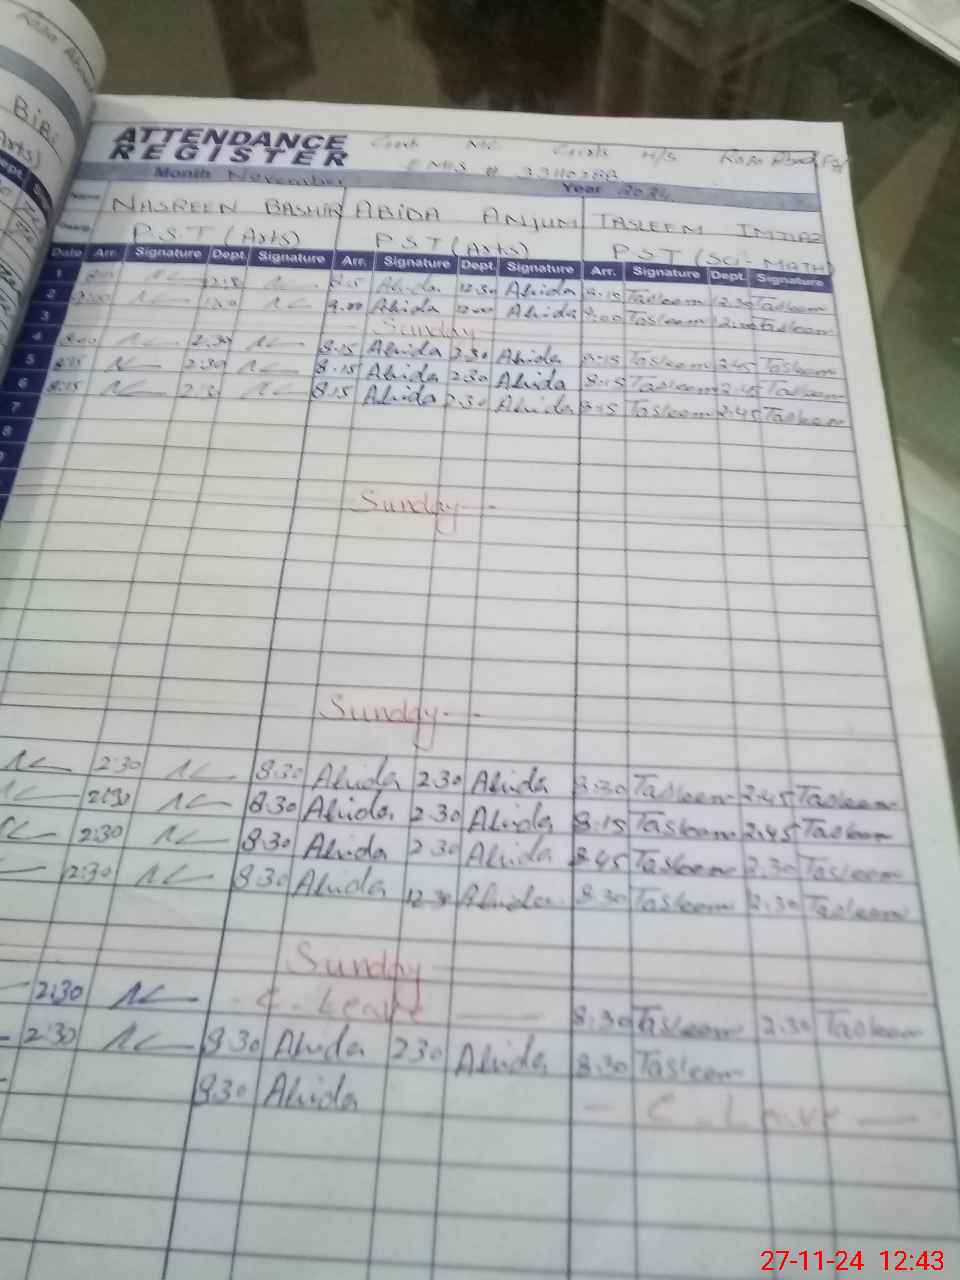 BiBi
ATTENDANCE
REGISTER
Month November Year 2024
Name NASREEN BASHIR ABIDA ANJUM TASLEEM IMTIAZ
P.S.T (Arts) P.S.T (Arts) P.S.T (Sci-MATH)
Date Arr. Signature Dept. Signature Arr. Signature Dept. Signature Arr. Signature Dept. Signature
1 Abida 12.30 Abida 8.15 Tasleem 12.30 Tasleem
2 9.00 Abida Abida Tasleem Tasleem
3 Sunday
4 2.30 8.15 Abida 2.30 Abida 8.15 Tasleem 2.45 Tasleem
5 8.15 2.30 8.15 Abida 2.30 Abida 8.15 Tasleem 2.45 Tasleem
6 8.15 8.15 Abida 2.30 Abida 8.15 Tasleem 2.45 Tasleem
7
8
Sunday
Sunday
2:30 8.30 Abida 2.30 Abida 8.30 Tasleem 2.45 Tasleem
2:30 8.30 Abida 2.30 Abida 8.15 Tasleem 2.45 Tasleem
2:30 8.30 Abida 2.30 Abida 8.45 Tasleem 2.30 Tasleem
2:30 8.30 Abida 12.30 Abida 8.30 Tasleem 2.30 Tasleem
Sunday
2:30 C. Leave 8.30 Tasleem 2.30 Tasleem
2:30 8.30 Abida 2.30 Abida 8.30 Tasleem
8.30 Abida C. Leave
27-11-24 12:43